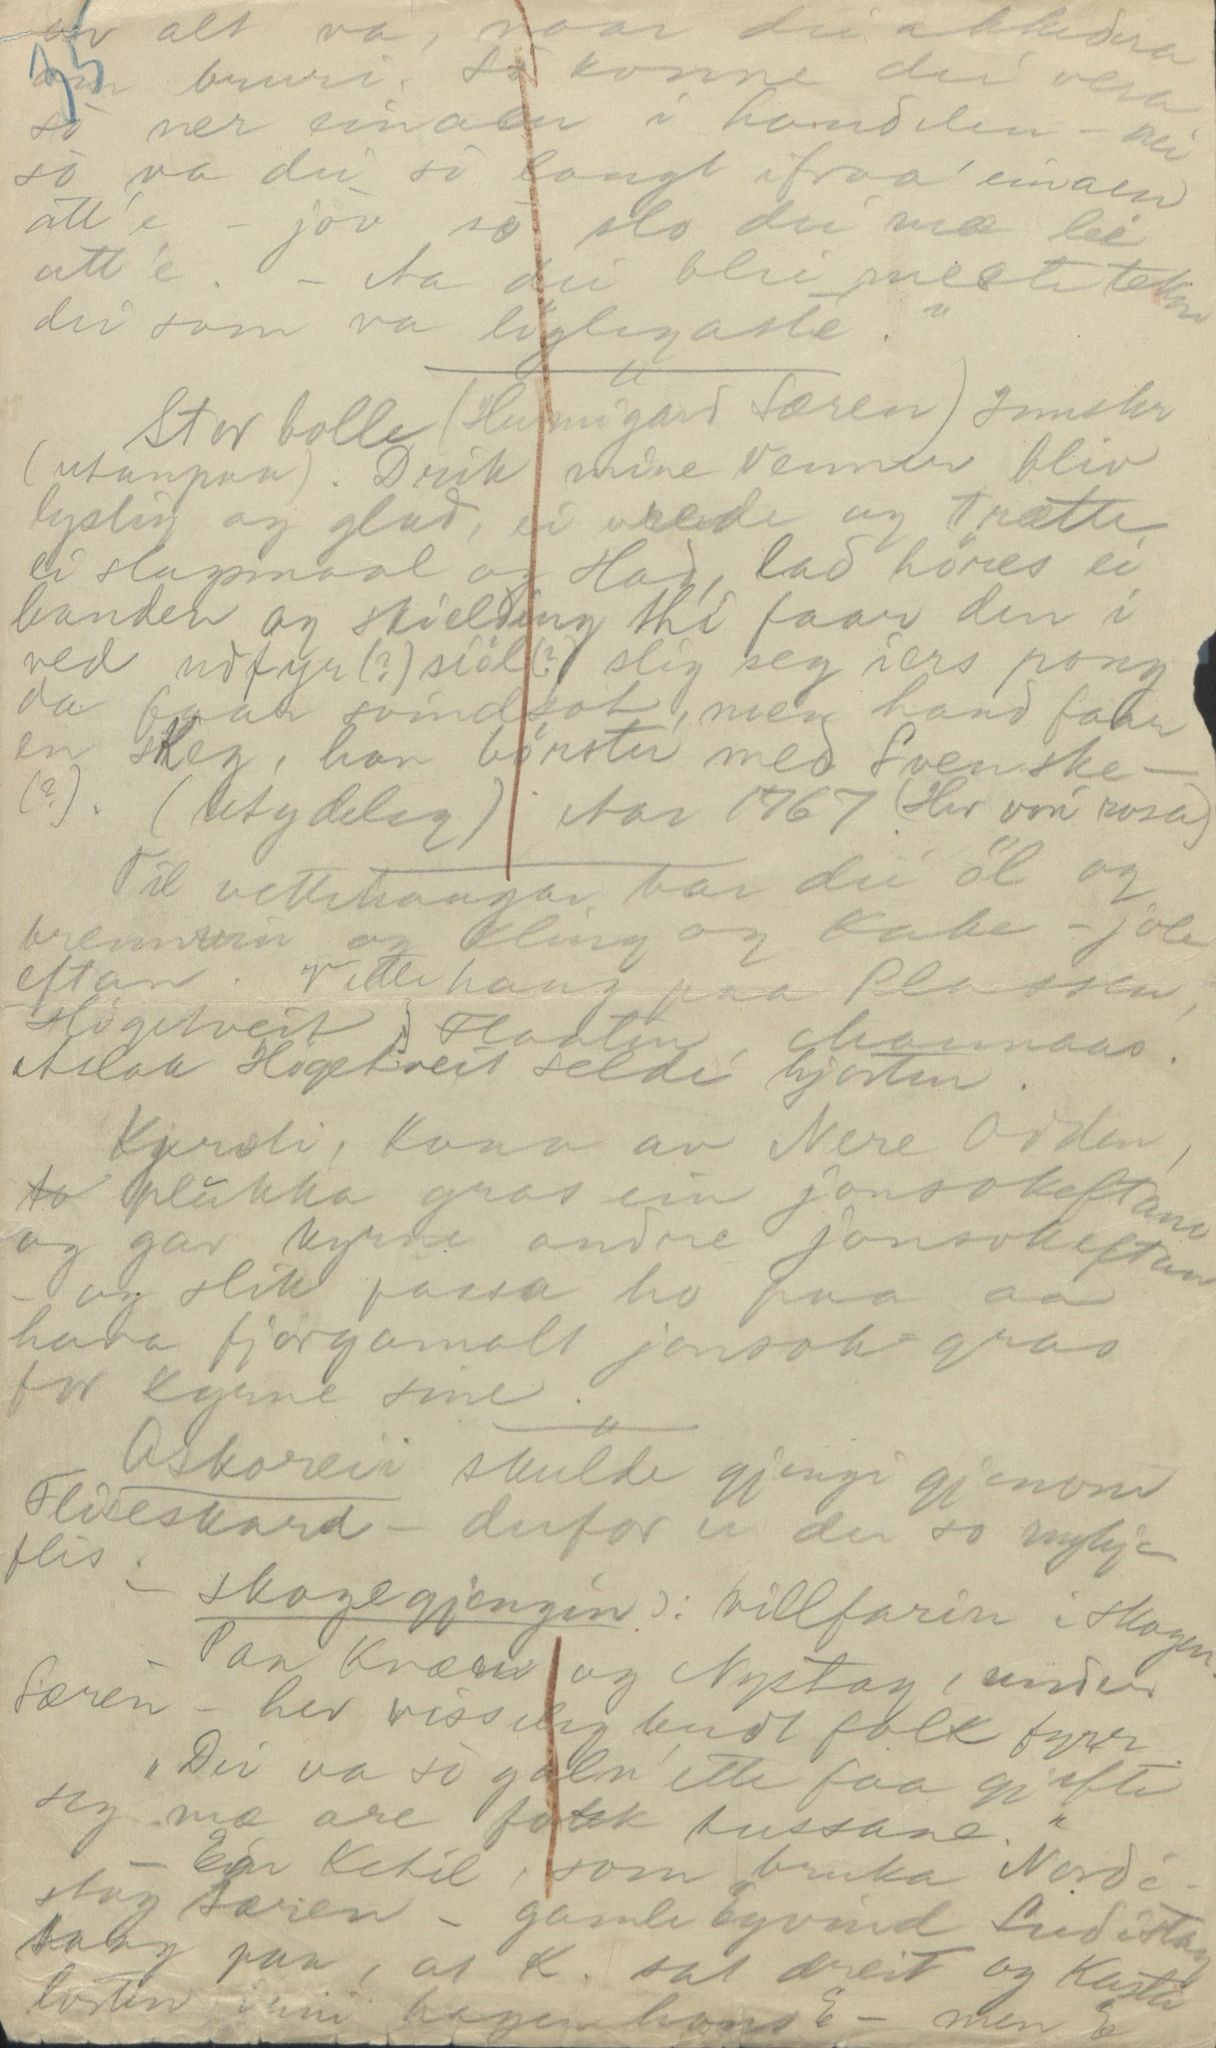 av alt va, naar dei akkedera
om bruri. Så konne dei vera
så ner einaen i handelen - nei
så va dei så langt ifraa einaen
att'e - jöv så slo dei mæ lei
att'e. - Aa dei blei meste tekne
dei som va löglegaste."
Stor bolle (Hu igard Særen) Innskr
(utanpaa). Drik mine Venner bliv
lystig og glad, ei vrede og Trætte
ei slagsmaal og Had, lad höres ei
banden og skielding thi faar den i
ved udfyr(?) siöl(?) slig seg iers pong
da faar svindsot, men hand faar
en skeg, han börster med Svenske-
(?). (Utydeleg) Aar 1767 (Her von rosa)
Til vettehaugar bar dei öl og
brennvin og kling og kake - jole-
eftan. Vettehaug paa Plassen,
Högetveit, Flaaten, Maurnaas.
Aslak Högetveit selde hjorten.
Kjersti, kona av Nere Odden,
to plukka gras ein jonsokeftane
og gav kyrne andre jonsokeftan
- og slik passa ho paa aa
hava fjorgamalt jonsok-gras
for kyrne sine.
Oskoreii skulde gjengi gjenom
Fliseskard - derfor er der so mykje
flis.
- skogegjengin: villfarin i skogen.
- Paa Kværn og Nystog, under
Særen - hev visseleg budt folk fyrr.
"Dei va så galn' ette faa gjifte
seg mæ are folk tussane."
- Ein Ketil, som bruka Nordi-
stog Særen - gamle Eyvind Sudistog
saag paa, at K. sat dreit og kasta
lorten inni hagen hans E - men E